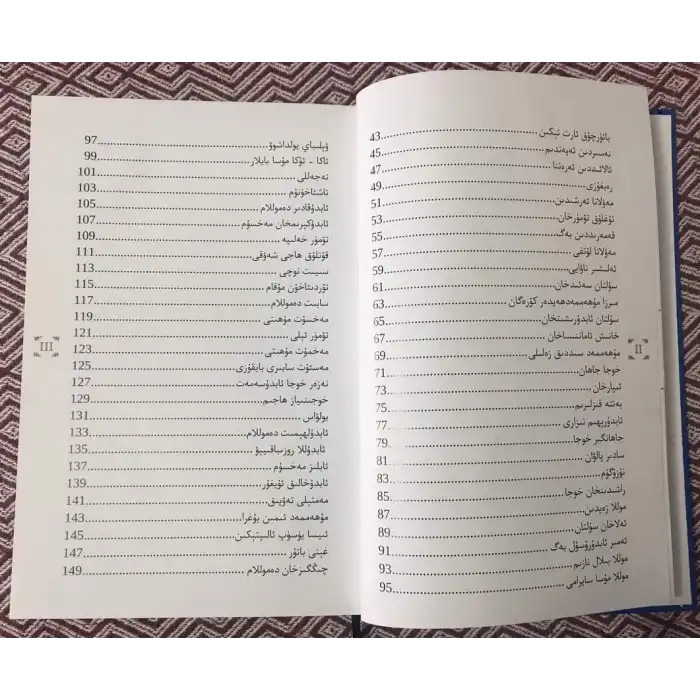 باتۇرچۇق ئارت تېكىن............43
نەسىردىن ئەپەندىم............45
ئالائىددىن ئەرەتنا............47
رەبغۇزى............49
مەۋلانا ئەرشىدىن............51
تۇغلۇق تۆمۈرخان............53
قەمەرىددىن بەگ............55
مەۋلانا لۇتفى............57
ئەلىشىر ناۋايى............59
سۇلتان سەئىدخان............61
مىرزا مۇھەممەدھەيدەر كۆرەگان............63
سۇلتان ئابدۇرىشىتخان............65
خانىش ئاماننىساخان............67
مۇھەممەد سىددىق زەلىلى............69
خوجا جاھان............71
ئىپارخان............73
يەتتە قىزلىرىم............75
ئابدۇرېھىم نىزارى............77
جاھانگىر خوجا............79
سادىر پالۋان............81
نۇزۇگۇم............83
راشىدىنخان خوجا............85
موللا زەيدىن............87
ئەلاخان سۇلتان............89
ئەمىر ئابدۇرۇسۇل بەگ............91
موللا بىلال نازىم............93
موللا مۇسا سايرامى............95
II
ئاكا - ئۇكا مۇسا بايلار............99
تەجەللى............101
ناشئاخۇنۇم............103
ئابدۇقادىر دەموللام............105
ئابدۇكېرىمخان مەخسۇم............107
تۆمۈر خەلىپە............109
قۇتلۇق ھاجى شەۋقى............111
سىيىت نوچى............113
تۇردىئاخۇن مۇقام............115
سابىت دەموللام............117
مەخسۇت مۇھىتى............119
تۆمۈر ئېلى............121
مەخمۇت مۇھىتى............123
مەسئۇت سابىرى بايقۇزى............125
نەزەر خوجا ئابدۇسەمەت............127
خوجىنىياز ھاجىم............129
يولۋاس............131
ئابدۇلھېمىت دەموللام............133
ئابدۇللا روزىباقىيېۋ............135
ئابلىز مەخسۇم............137
ئابدۇخالىق ئۇيغۇر............139
مەمتېلى تەۋپىق............141
مۇھەممەد ئىمىن بۇغرا............143
ئەيسا يۈسۈپ ئالىپتېكىن............145
غېنى باتۇر............147
چىڭگىزخان دەموللام............149
III